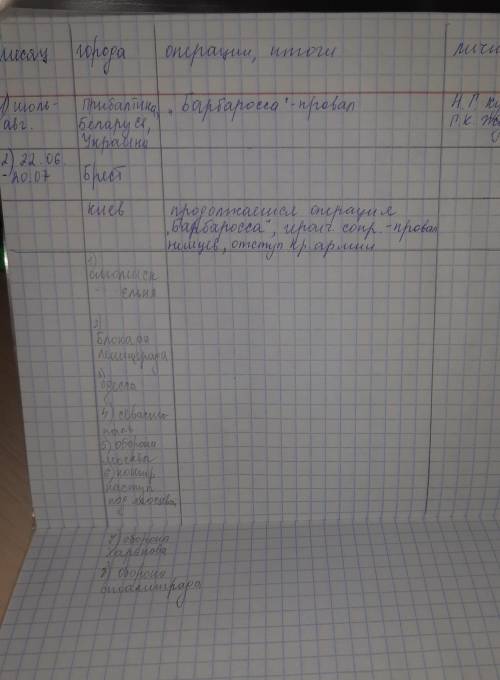 месяц города операции, итоги личн
1) июль- Прибалтика, "Барбаросса"-провал Н. Г. Ку
авг. Беларусь, Г. К. Жу
Украина
2) 22.06
-20.07 Брест
Киев продолжается операция
"Барбаросса", героич. сопр.-провал
немцев, отступ. кр. армии
1)
Смоленск
Ельня
2)
Блокада
Ленинграда
3)
Одесса
4) Севасто
поль
5) оборона
Москвы
6) контр
наступ
под Москвой
7) оборона
Харькова
8) оборона
Сталинграда